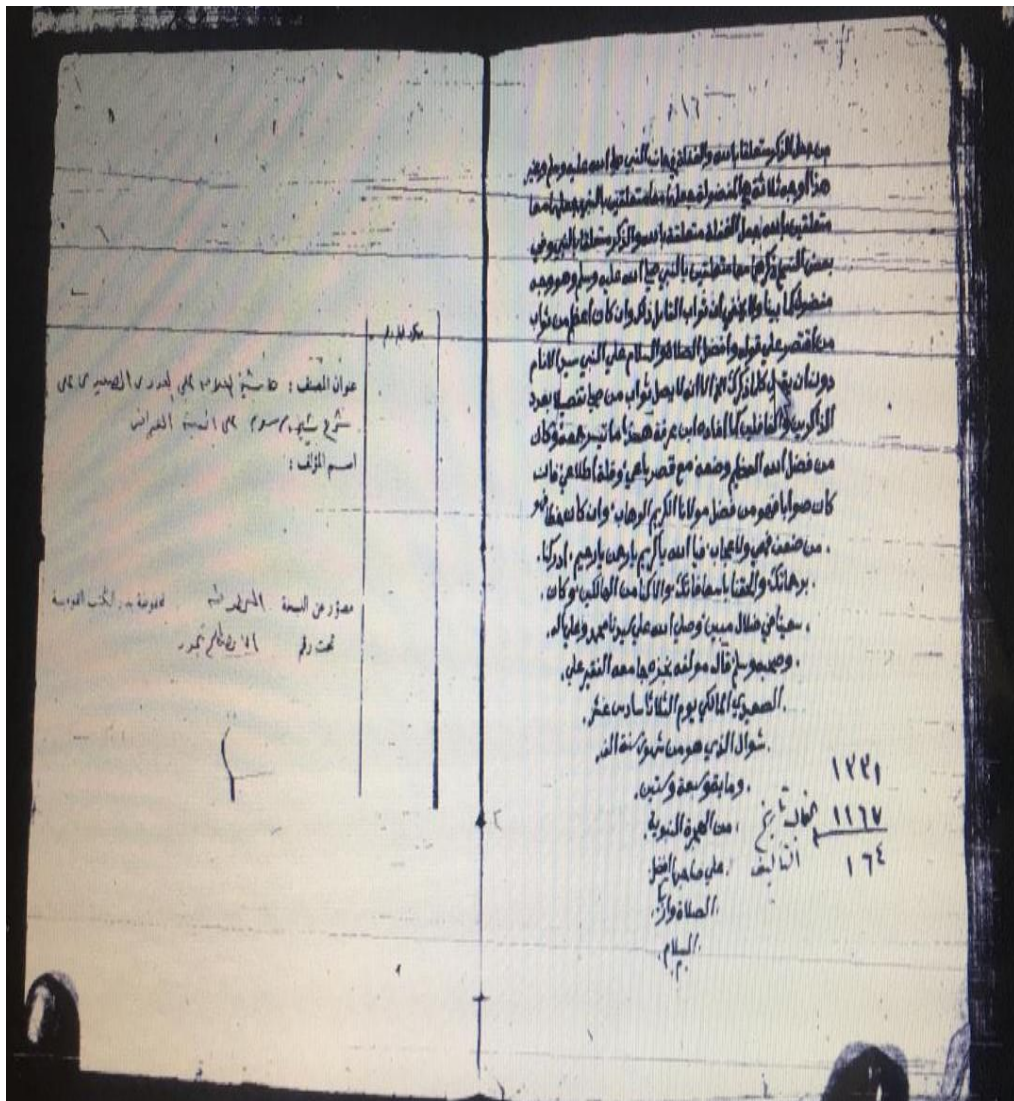 ٨١٦
من جعل الذكر متعلقا بالله والغفلة في جانب النبي صلى الله عليه وسلم وغير
هذا الوجه ثلاثة
متعلقتين بالله جعل الغفلة متعلقة بالله والذكر متعلقا بالنبي وفي
بعض النسخ ذكرهما معا متعلقتين بالنبي صلى الله عليه وسلم وهو وجه
مفضول كما بينا ولا يخفى ان ثواب القائل ذلك وان كان أعظم من ثواب
من اقتصر على قوله وافضل الصلاة والسلام على النبي سيد الانام
دون أن يقول كلما ذكرك الخ الا انه لا يصل ثواب من صلى تفصيلا بعدد
الذاكرين والغافلين كما افاده ابن عرفة هذا ما تيسر جمعه وكان
من فضل الله العظيم وضعه مع قصر باعي وقلة اطلاعي فان
كان صوابا فهو من فضل مولانا الكريم الوهاب وان كان خطأ فهو
من ضعف فهمي ولا عجاب فيا الله يا كريم يا رحمن يا رحيم ادركنا
برحمانك والا كنا من الهالكين وكان
سعينا في ضلال مبين وصلى الله على سيدنا محمد وعلى اله
وصحبه وسلم قال مولفه نجز جامعه الفقير علي
الصعيدي المالكي يوم الثلاثا سادس عشر
شوال الذي هو من شهور سنة الف
وماية وسبعة وستين
من الهجرة النبوية
على صاحبها افضل
الصلاة وازكى
السلام
١٣٣١
١١٦٧
تاريخ
التأليف
١٦٤
عنوان المصنف : حاشية العدوي علي الصعيدي على
شرح شيخ الاسلام على الفية العراقي
اسم المؤلف :
مصور عن النسخة الخطية المحفوظة بدار الكتب القومية
تحت رقم
تيمور